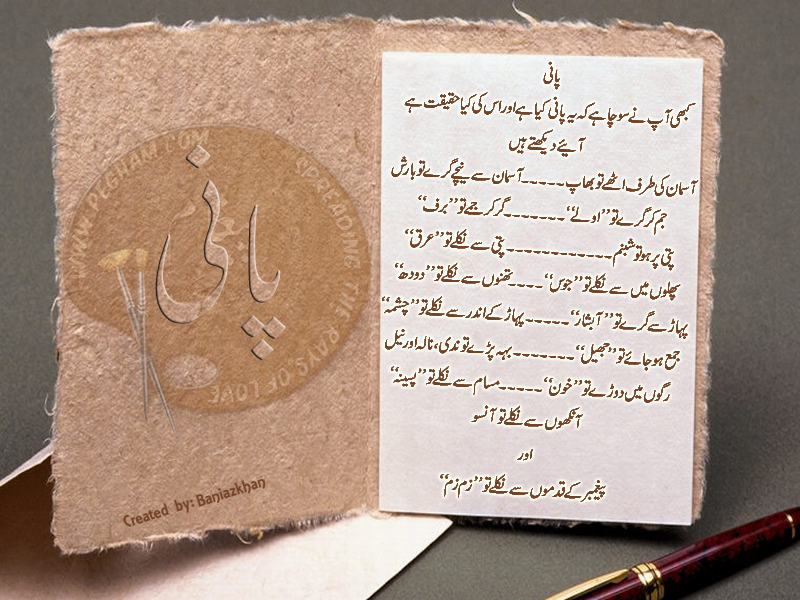 پانی
WWW.PEGHAM.COM
SPREADING THE RAYS OF LOVE
Created by: Baniazkhan
پانی
کبھی آپ نے سوچا ہے کہ یہ پانی کیا ہے اور اس کی کیا حقیقت ہے
آیئے دیکھتے ہیں
آسمان کی طرف اٹھے تو بھاپ-----آسمان سے نیچے گرے تو بارش
جم کر گرے تو ”اولے“-------گر کر جمے تو ”برف“
پتی پر ہو تو شبنم------------پتی سے نکلے تو ”عرق“
پھلوں میں سے نکلے تو ”جوس“----تھنوں سے نکلے تو ”دودھ“
پہاڑ سے گرے تو ”آبشار“-----پہاڑ کے اندر سے نکلے تو ”چشمہ“
جمع ہو جائے تو ”جھیل“-------بہہ پڑے تو ندی، نالہ اور نیل
رگوں میں دوڑے تو ”خون“-----مسام سے نکلے تو ”پسینہ“
آنکھوں سے نکلے تو آنسو
اور
پیغمبر کے قدموں سے نکلے تو ”زم زم“